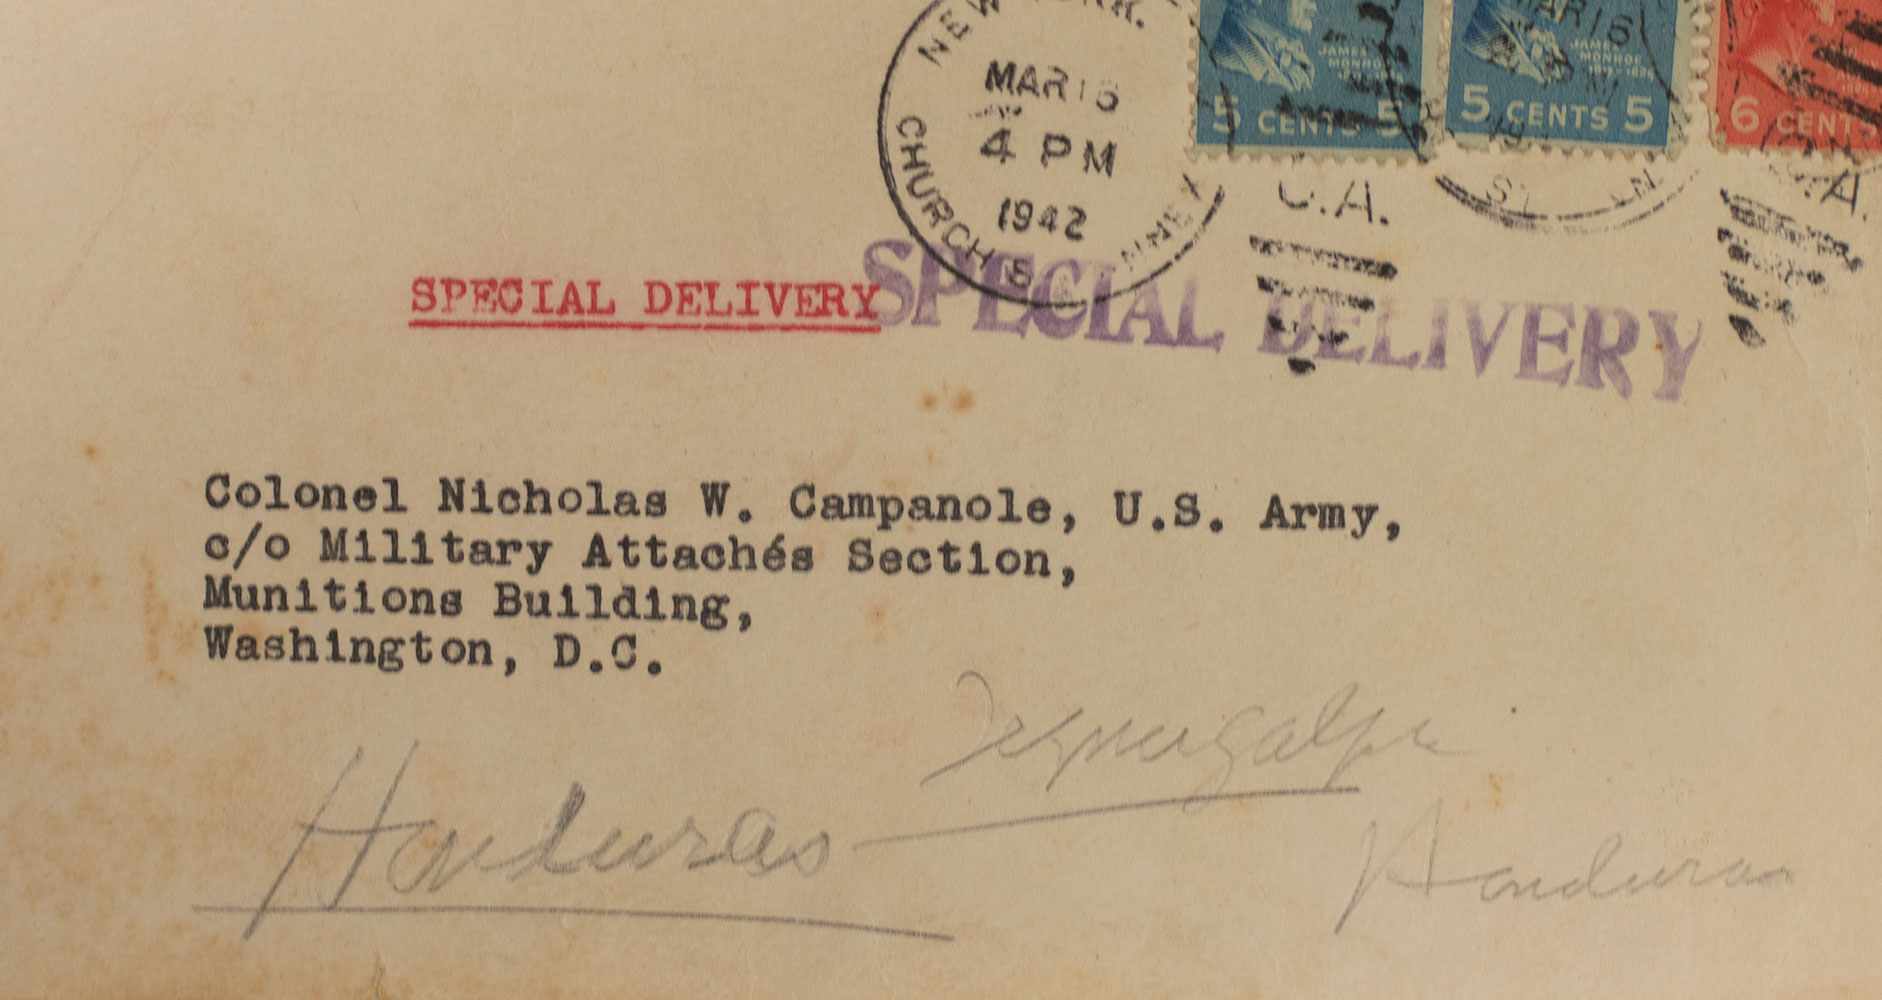 NEW YORK.
MAR 16
4 PM
1942
CHURCH S
ANNEX
JAMES
MONROE
5 CENTS 5
MAR 16
JAMES
MONROE
5 CENTS 5
6 CENTS
SPECIAL DELIVERY
SPECIAL DELIVERY
Colonel Nicholas W. Campanole, U.S. Army,
c/o Military Attachés Section,
Munitions Building,
Washington, D.C.
Tegucigalpa
Honduras
Honduras